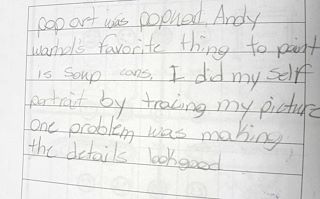 pop art was popular. Andy
warhol's favorite thing to paint
is soup cans. I did my self
portrait by tracing my picture
one problem was making
the details look good